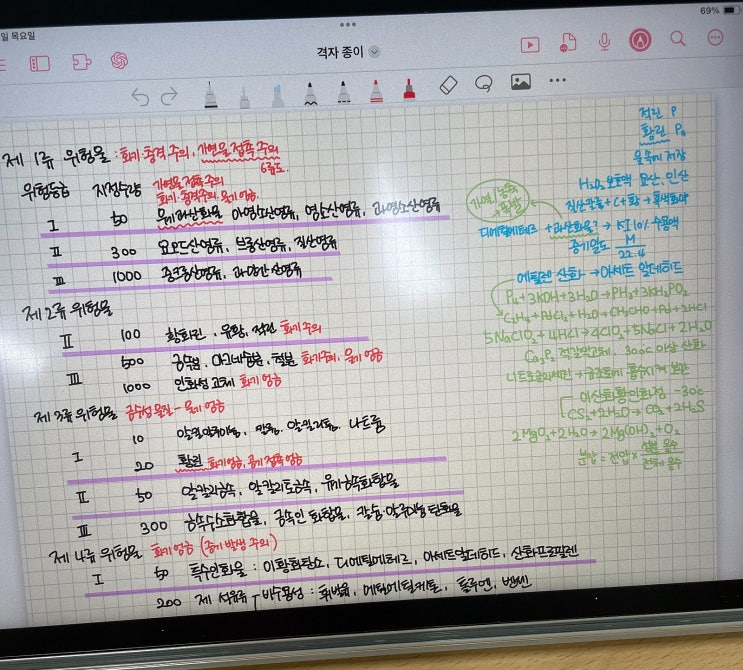 일 목요일
69%
격자 종이
제 1류 위험물 : 화기·충격 주의, 가연물 접촉 주의
6류도.
위험등급 지정수량 가연물 접촉 주의
화기·충격주의·물기 엄금
I 50 무기과산화물 아염소산염류, 염소산염류, 과염소산염류
II 300 요오드산염류, 브롬산염류, 질산염류
III 1000 중크롬산염류, 과망간산염류
제 2류 위험물
II 100 황화린, 유황, 적린 화기 주의
III 500 금속분, 마그네슘분, 철분 화기주의, 물기 엄금
1000 인화성 고체 화기 엄금
제 3류 위험물 금수성 물질 - 물기 엄금
I 10 알킬알루미늄, 칼륨, 알킬리튬, 나트륨
20 황린 화기엄금, 공기 접촉 엄금
II 50 알칼리금속, 알칼리토금속, 유기금속화합물
III 300 금속수소화합물, 금속인화합물, 칼슘·알루미늄 탄화물
제 4류 위험물 화기 엄금 (증기 발생 주의)
I 50 특수인화물 : 이황화탄소, 디에틸에테르, 아세트알데히드, 산화프로필렌
200 제 석유류 - 비수용성 : 휘발유, 메틸에틸케톤, 톨루엔, 벤젠
적린 P
황린 P₄
물속에 저장
H₂O₂ 보호액 요산, 인산
질산칼륨 + C + 황 → 흑색화약
가열/농축
→ 폭발
디에틸에테르 + 과산화물? → KI 10% 수용액
증기밀도 M
22.4
에틸렌 산화 → 아세트 알데히드
P₄ + 3KOH + 3H₂O → PH₃ + 3KH₂PO₂
C₂H₄ + PdCl₂ + H₂O → CH₃CHO + Pd + 2HCl
5NaClO₂ + 4HCl → 4ClO₂ + 5NaCl + 2H₂O
Ca₃P₂ 적갈색고체, 300℃ 이상 산화
니트로글리세린 → 규조토에 흡수시켜 보관
이산화황인화점 -30℃
CS₂ + 2H₂O → CO₂ + 2H₂S
2MgO₂ + 2H₂O → 2Mg(OH)₂ + O₂
분압 = 전압 × 성분 몰수
전체 몰수